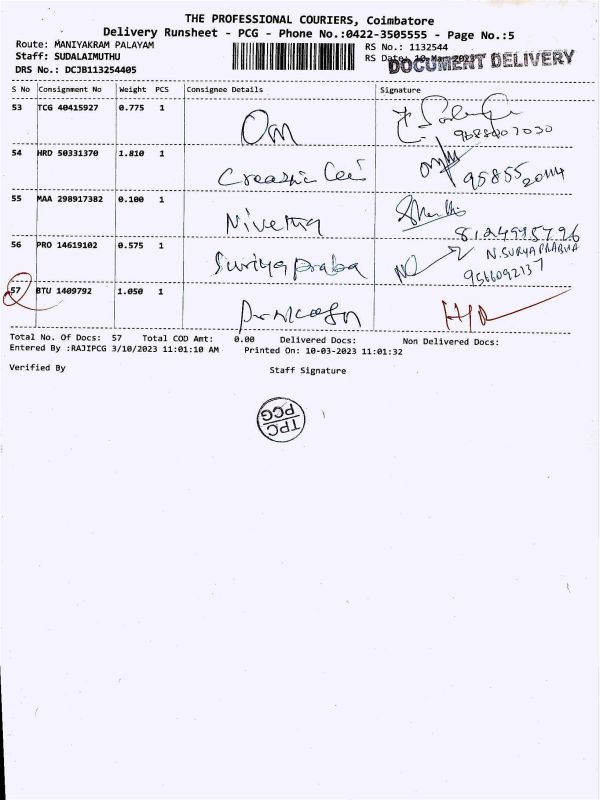 THE PROFESSIONAL COURIERS, Coimbatore
Delivery Runsheet - PCG - Phone No.:0422-3505555 - Page No.:5
Route: MANIYAKRAM PALAYAM
RS No.: 1132544
Staff: SUDALAIMUTHU
RS Date: 10-Mar-2023
DOCUMENT DELIVERY
DRS No.: DCJB113254405
S No Consignment No Weight PCS Consignee Details Signature
53 TCG 40415927 0.775 1
Om
54 HRD 50331370 1.810 1
95855 20114
55 MAA 298917382 0.100 1
Nivetha
8124995796
56 PRO 14619102 0.575 1 N.SURYAPRABHA
Suriya praba
9566092137
57 BTU 1409792 1.050 1
Total No. Of Docs: 57 Total COD Amt: 0.00 Delivered Docs: Non Delivered Docs:
Entered By :RAJIPCG 3/10/2023 11:01:10 AM Printed On: 10-03-2023 11:01:32
Verified By Staff Signature
TPC
PCG